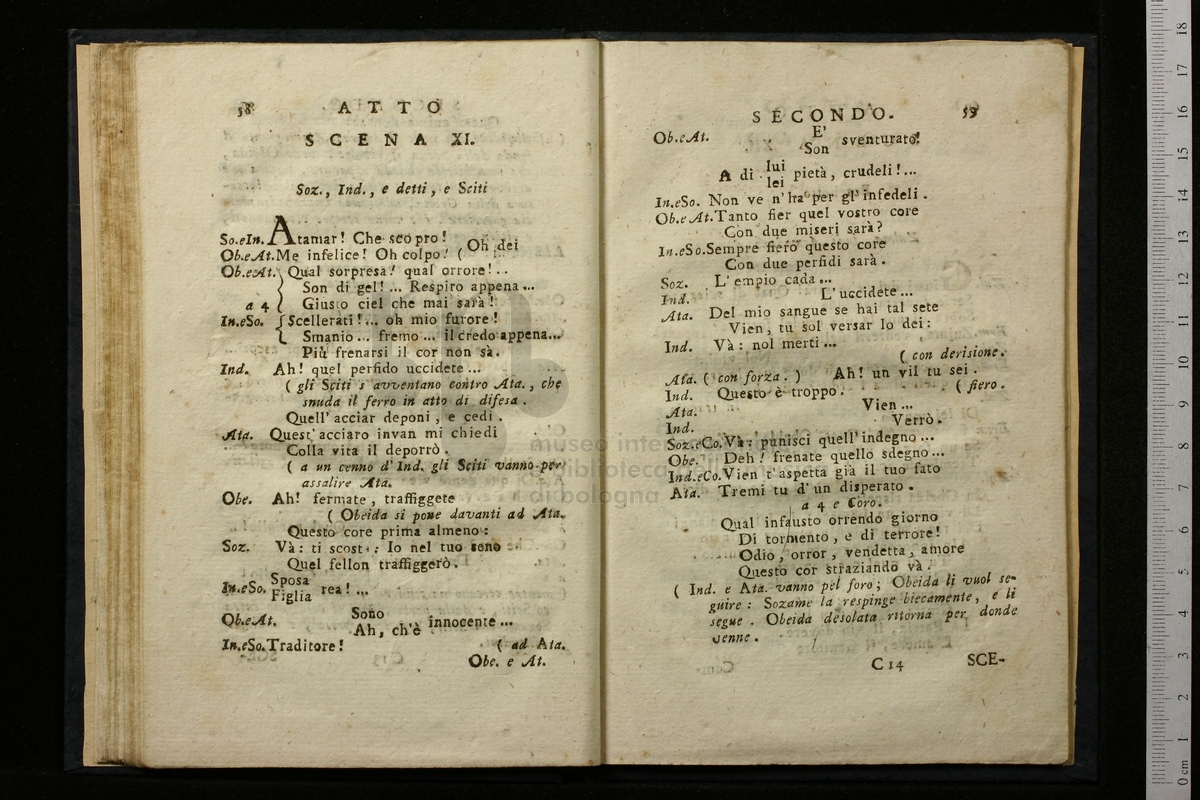 58
ATTO
SCENA XI.
Soz., Ind., e detti, e Sciti
So.eIn. Atamar! Che scopro!
Ob.eAt. Me infelice! Oh colpo! (Oh dei
Ob.eAt. Qual sorpresa! qual orrore!..
Son di gel!... Respiro appena...
a 4 Giusto ciel che mai sarà!
In.eSo. Scellerati!... oh mio furore!
Smanio... fremo... il credo appena...
Più frenarsi il cor non sà.
Ind. Ah! quel perfido uccidete...
( gli Sciti s'avventano contro Ata., che
snuda il ferro in atto di difesa.
Quell' acciar deponi, e cedi.
Ata. Quest' acciaro invan mi chiedi
Colla vita il deporrò.
( a un cenno d'Ind. gli Sciti vanno per
assalire Ata.
Obe. Ah! fermate, traffiggete
( Obeida si pone davanti ad Ata.
Questo core prima almeno:
Soz. Và: ti scosta: Io nel tuo seno
Quel fellon traffiggerò.
In.eSo. Sposa
Figlia rea!...
Ob.eAt. Sono
Ah, ch'è innocente...
In.eSo. Traditore! ( ad Ata.
Obe. e At.
SECONDO. 59
Ob.eAt. E'
Son sventurato!
A di lui
lei pietà, crudeli!...
In.eSo. Non ve n'ha per gl'infedeli.
Ob.eAt. Tanto fier quel vostro core
Con due miseri sarà?
In.eSo. Sempre fiero questo core
Con due perfidi sarà.
Soz. L'empio cada...
Ind. L'uccidete...
Ata. Del mio sangue se hai tal sete
Vien, tu sol versar lo dei:
Ind. Và: nol merti...
( con derisione.
Ata. ( con forza. ) Ah! un vil tu sei.
Ind. Questo è troppo. ( fiero.
Ata. Vien...
Ind. Verrò.
Soz.eCo. Và: punisci quell'indegno...
Obe. Deh! frenate quello sdegno...
Ind.eCo. Vien t'aspetta già il tuo fato
Ata. Tremi tu d'un disperato.
a 4 e Coro.
Qual infausto orrendo giorno
Di tormento, e di terrore!
Odio, orror, vendetta, amore
Questo cor straziando và.
( Ind. e Ata. vanno pel foro; Obeida li vuol se-
guire: Sozame la respinge biecamente, e li
segue. Obeida desolata ritorna per donde
venne.
C 14 SCE-
museo inte
biblioteca
di bologna
0 cm 1 2 3 4 5 6 7 8 9 10 11 12 13 14 15 16 17 18